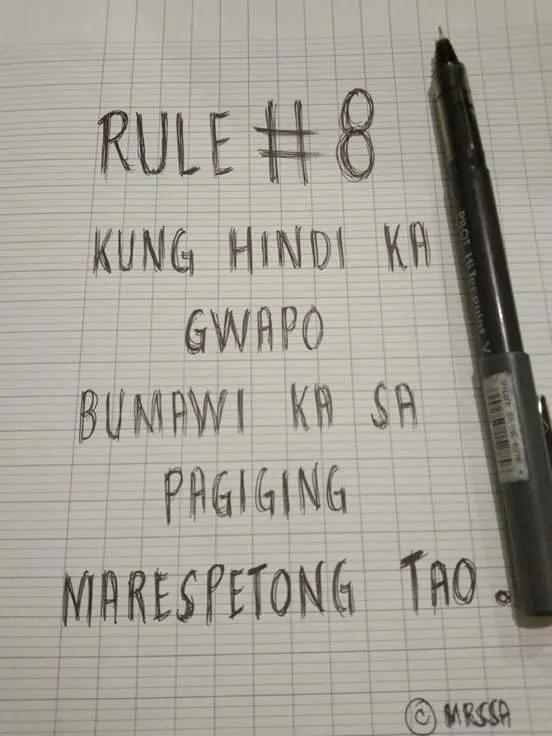 RULE #8
KUNG HINDI KA
GWAPO
BUMAWI KA SA
PAGIGING
MARESPETONG TAO.
© MRSSA
PILOT Hi-Tecpoint V